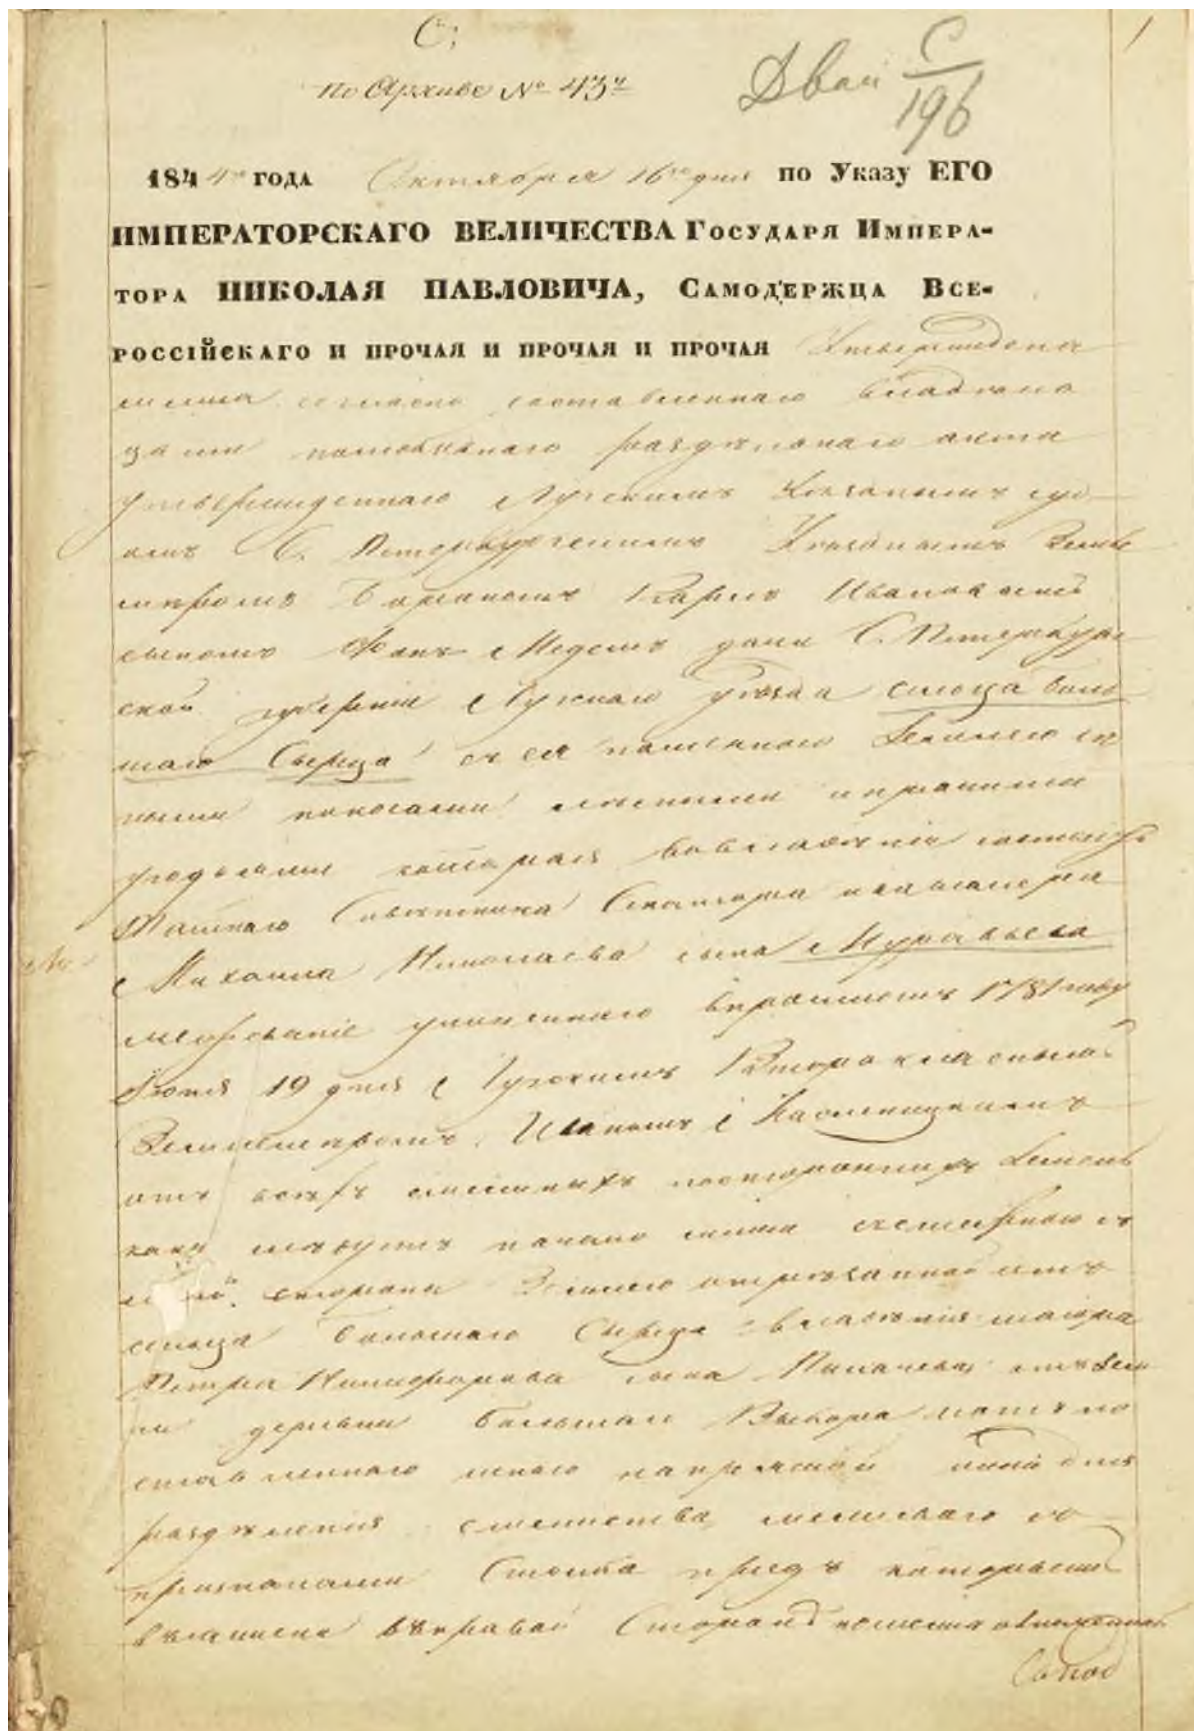 С;
По Архиве № 43й
Двой С/196
1
1844го года Октября 16го дня по Указу ЕГО
ИМПЕРАТОРСКАГО ВЕЛИЧЕСТВА Государя Импера-
тора НИКОЛАЯ ПАВЛОВИЧА, Самодержца Все-
россійскаго и прочая и прочая и прочая Утверждена
межа согласно составленнаго владѣль
цами полюбовнаго раздѣльнаго акта
утвержденнаго Лужскимъ Уѣзднымъ судо
мъ С. Петербургскимъ Уѣзднымъ Землемѣ
ромъ Барономъ Карломъ Ивановымъ
сыномъ Фонъ Медемъ дачи С. Петербург
ской губерніи Лужскаго уѣзда сельца Боль
шаго Сырца съ ея пашенною Землею сѣн
ными покосами лѣсными и прочими
угодьями которая во владѣніи состоитъ
Тайнаго Совѣтника Сенатора и кавалера
Михаила Николаева сына Муравьева
межеваніе учиненнаго въ прошломъ 1781 году
Іюня 19 дня Лужскимъ Второкласнымъ
Землемѣромъ Иваномъ
отъ всѣхъ смежныхъ постороннихъ Земель
какъ слѣдуетъ начало межи
сторона Землею отрѣзанной отъ
сельца Большаго Сырца владѣнія маіора
Петра Никифорова сына отъ Земли
деревни Большаго
ставленнаго межею на прямой
раздѣленія смежества межеваго со
признаками Столба предъ которымъ
вкапаны въ правой Сторонѣ